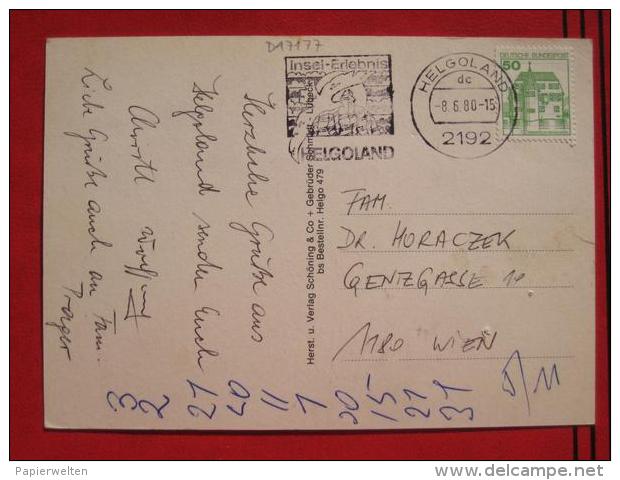 D17177
Insel-Erlebnis
HELGOLAND
HELGOLAND
dc
-8.6.80-15
2192
50
DEUTSCHE BUNDESPOST
Herst. u. Verlag Schöning & Co + Gebrüder Schmidt, Lübeck
bs Bestellnr. Helgo 479
Herzliche Grüße aus
Helgoland senden Euch
Liebe Grüße auch an Fam.
Prager
FAM.
DR. HORACZEK
GENTZGASSE
1180 WIEN
5/11
3
2
11
1
15
21
31
Papierwelten
www.delcampe.net